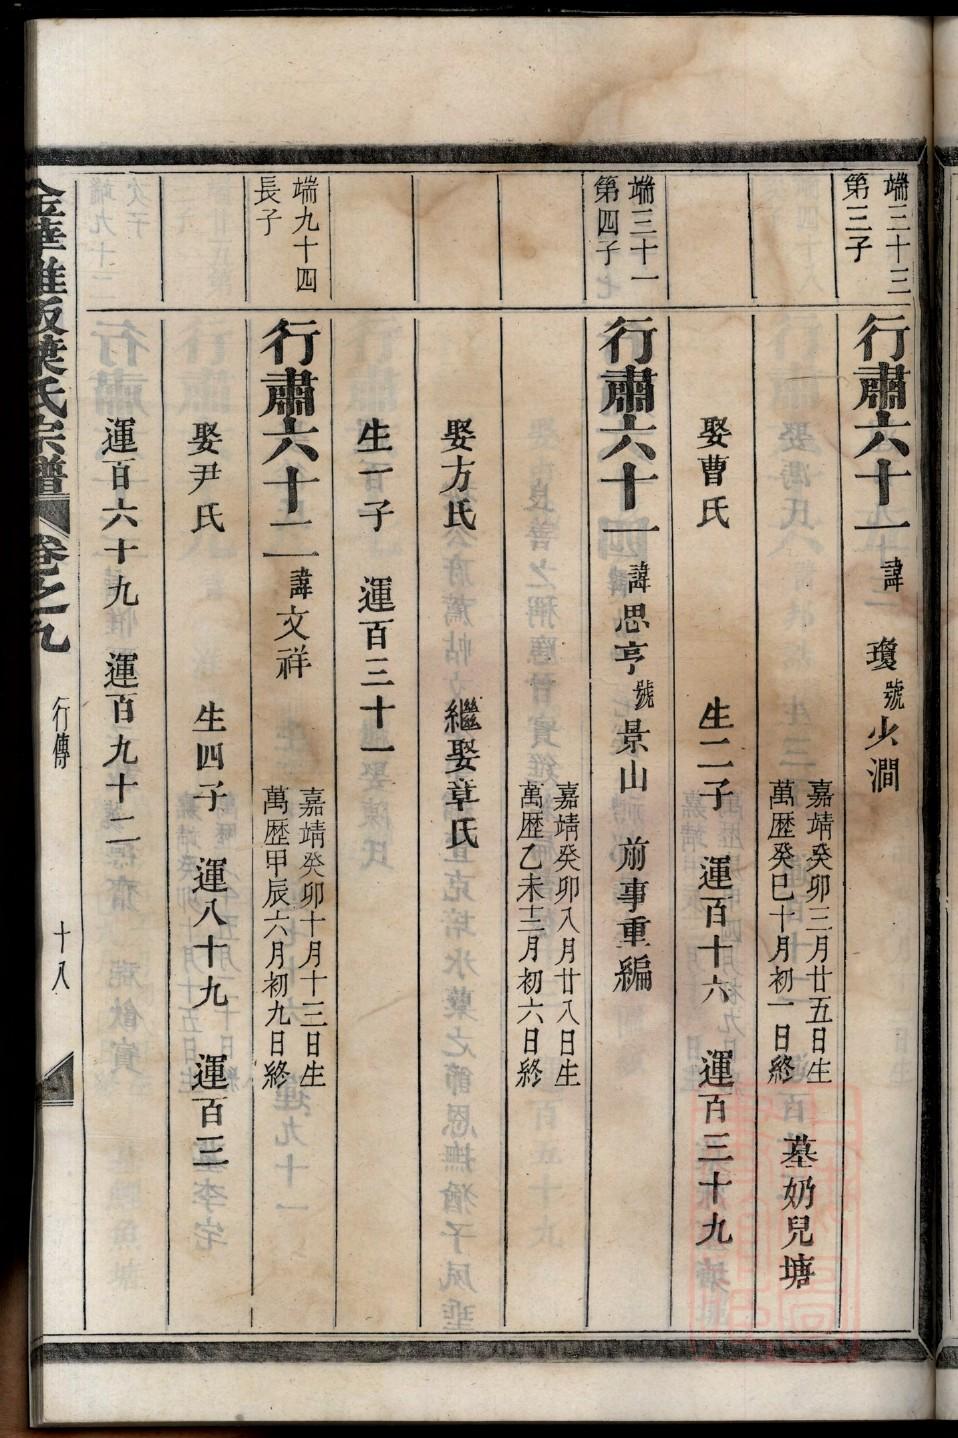 端三十三
第三子
行肅六十一諱 瓊號少澗
嘉靖癸卯三月廿五日生
萬歷癸巳十月初一日終
墓奶兒塘
娶曹氏 生二子 運百十六 運百三十九
端三十一
第四子
行肅六十一諱思亨號景山 前事重編
嘉靖癸卯八月廿八日生
萬歷乙未十二月初六日終
娶方氏 繼娶章氏
生一子 運百三十一
端九十四
長子
行肅六十二諱文祥
嘉靖癸卯十月十三日生
萬歷甲辰六月初九日終
娶尹氏 生四子 運八十九 運百三
運百六十九 運百九十二
氏宗譜 卷之九 行傳 十八